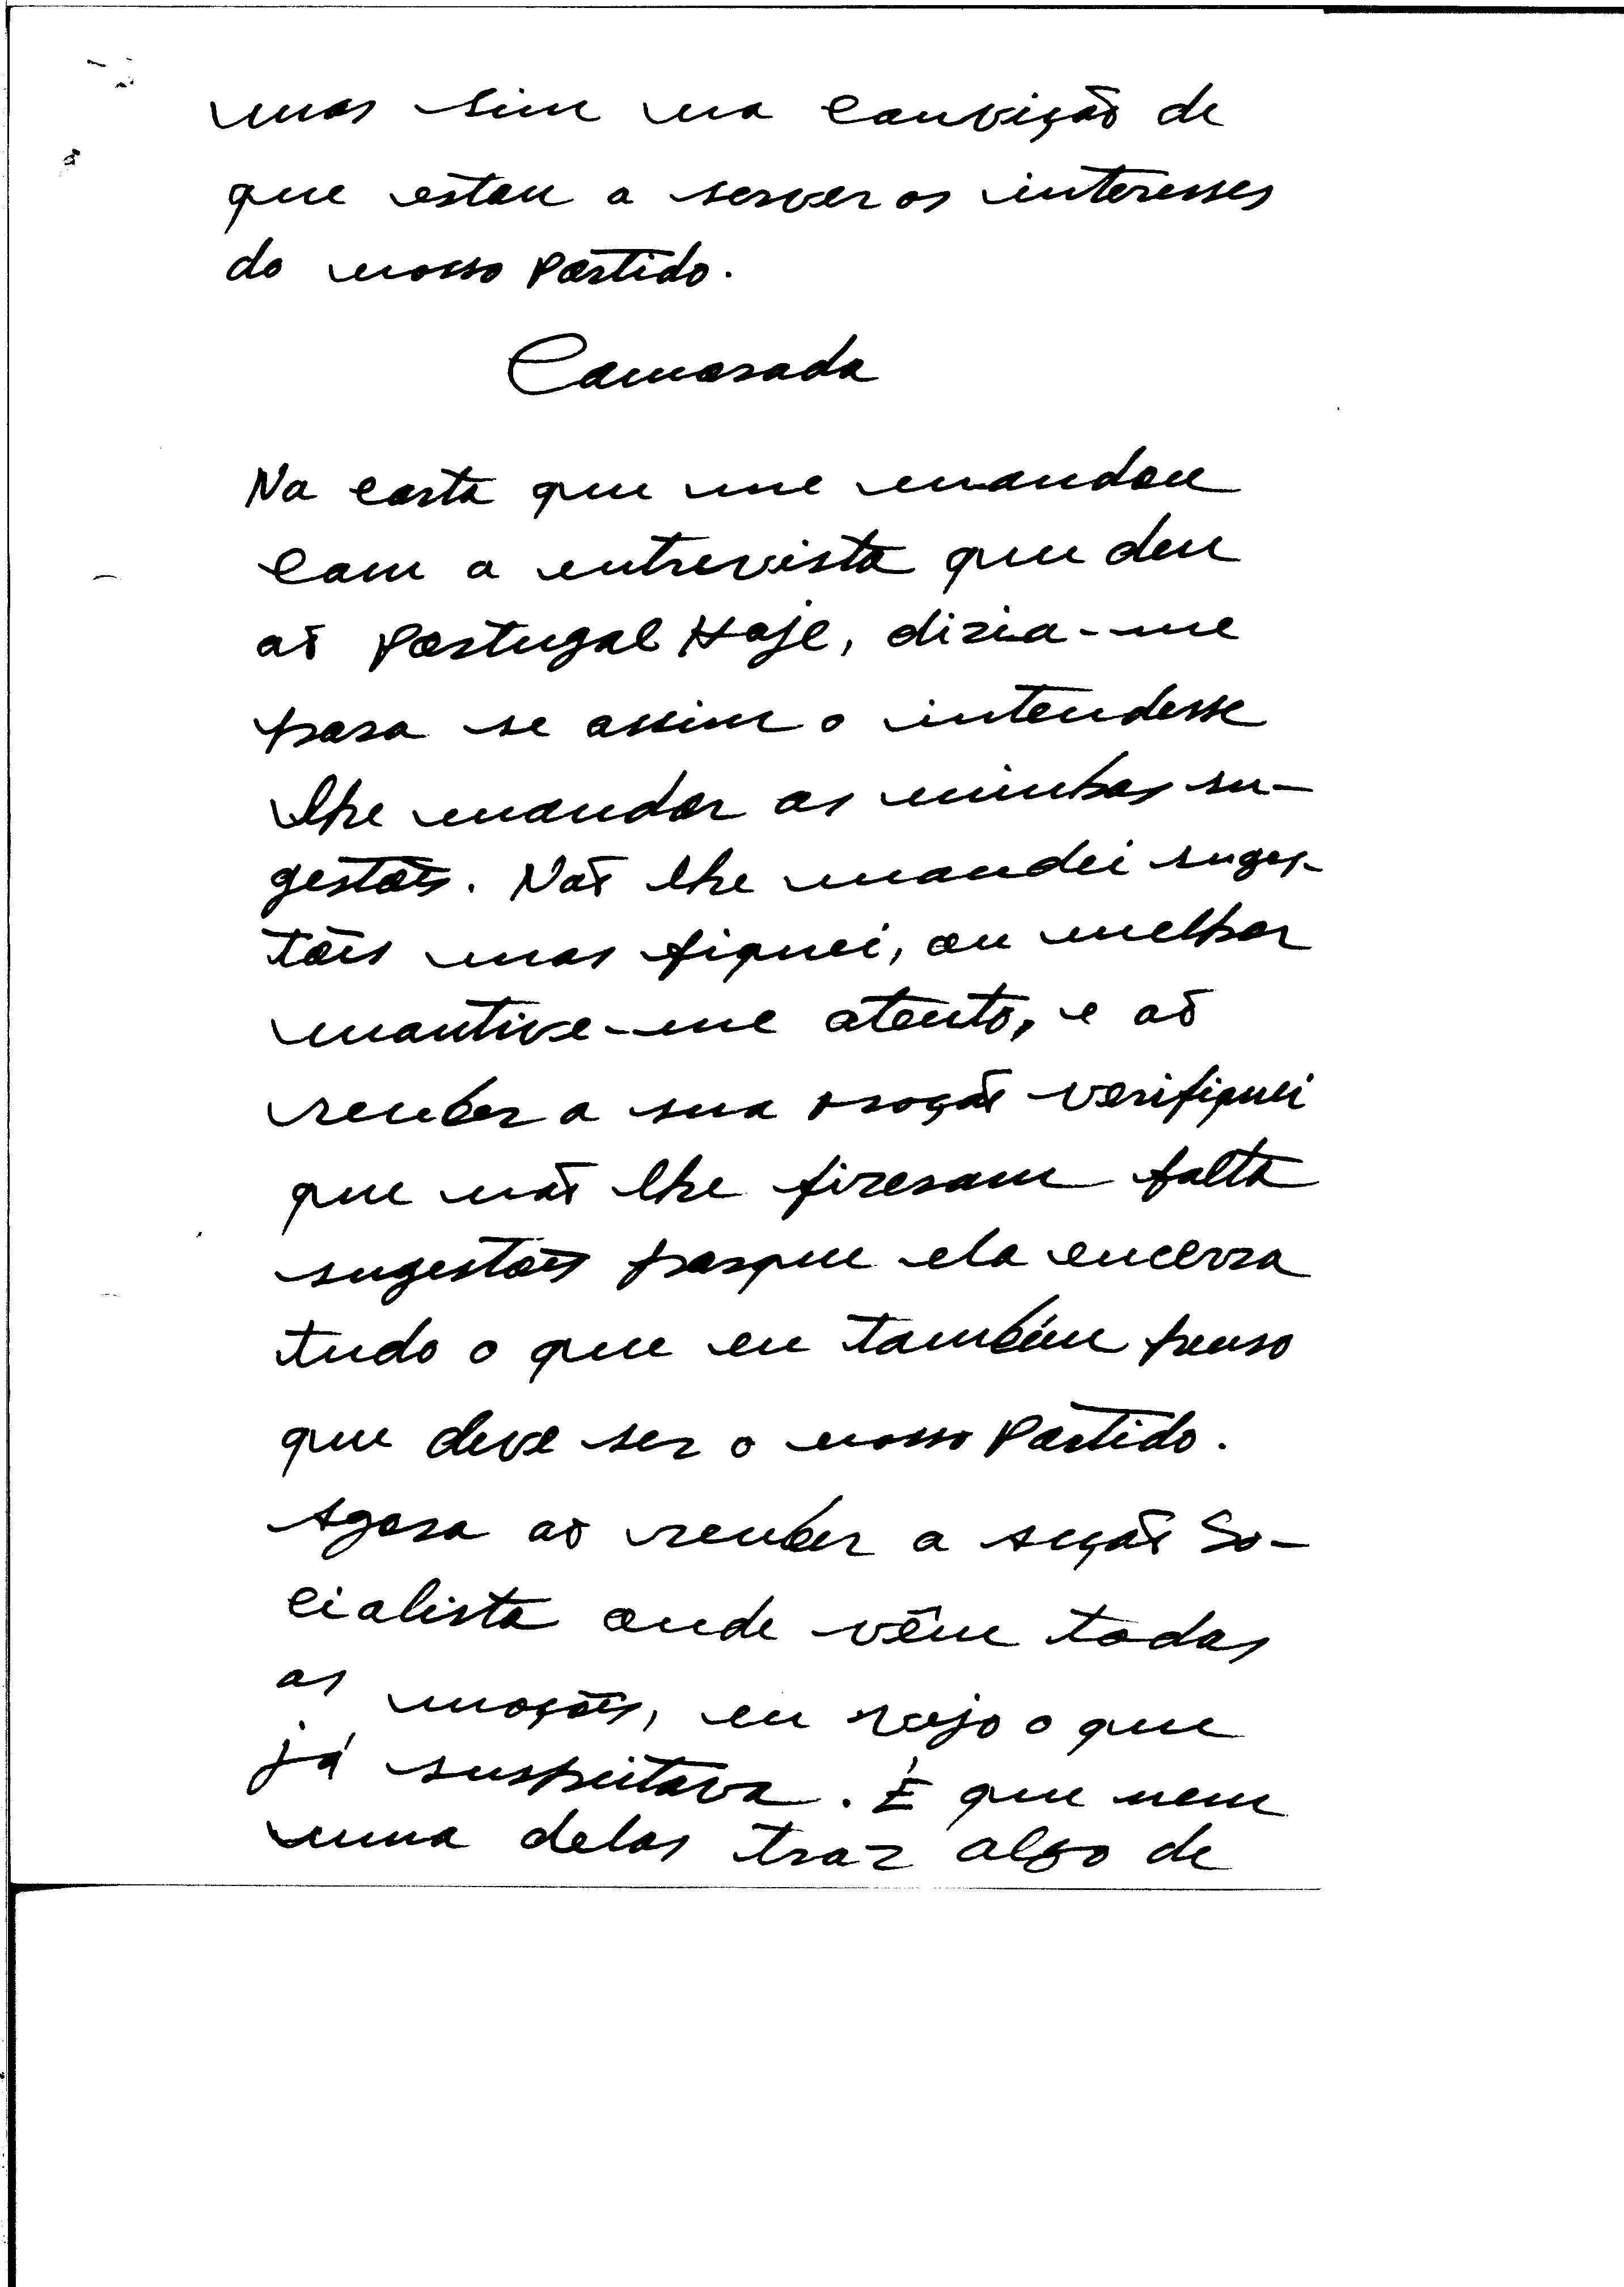 mas sim na convição de
que estou a server os interesses
do nosso Partido.
Camarada
Na carta que me mandou
com a entrevista que deu
ao Portugal Hoje, dizia-me
para se assim o intendesse
lhe mandar as minhas su-
gestões. Não lhe mandei suges-
tões mas fiquei, ou melhor
mantive-me atento, e ao
receber a sua moção verifiquei
que não lhe fizeram falta
sugestões porque ela encerra
tudo o que eu também penso
que deve ser o nosso Partido.
Agora ao receber a acção So-
cialista onde vêm todas
as moções, eu vejo o que
já suspeitava. É que nem
uma delas traz algo de